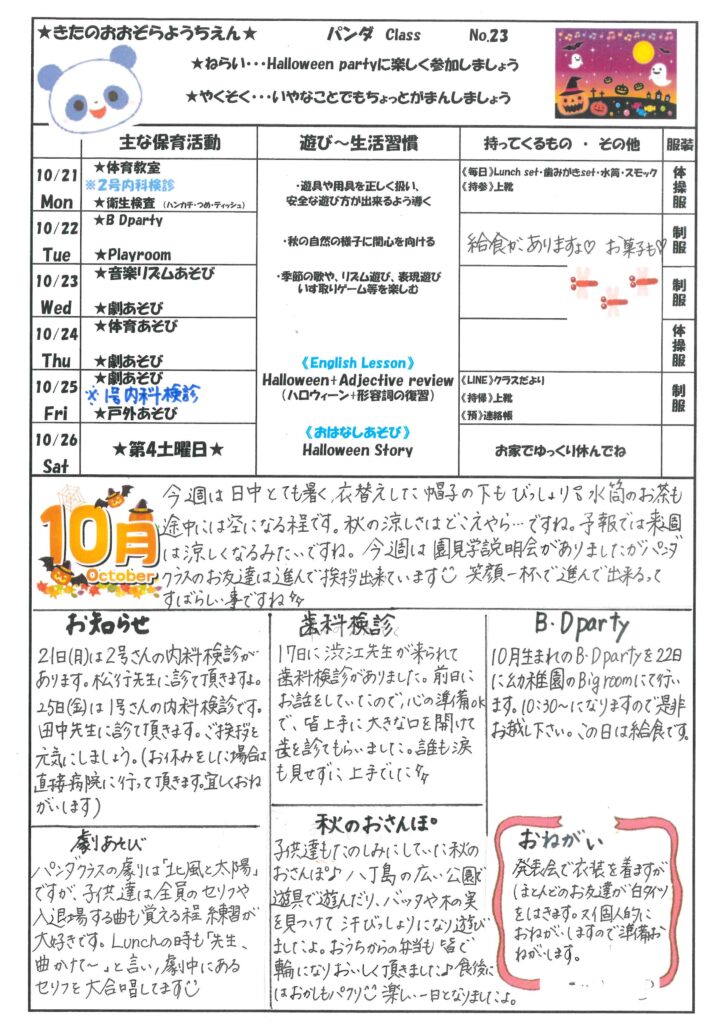 ★きたのおおぞらようちえん★ パンダ Class No.23
★ねらい・・・Halloween partyに楽しく参加しましょう
★やくそく・・・いやなことでもちょっとがまんしましょう
主な保育活動 遊び～生活習慣 持ってくるもの ・ その他 服装
10/21 Mon
★体育教室
※2号内科検診
★衛生検査（ハンカチ・つめ・ティッシュ）
10/22 Tue
★B Dparty
★Playroom
10/23 Wed
★音楽リズムあそび
★劇あそび
10/24 Thu
★体育あそび
★劇あそび
10/25 Fri
★劇あそび
※1号内科検診
★戸外あそび
10/26 Sat
★第4土曜日★
・遊具や用具を正しく扱い、
安全な遊び方が出来るよう導く
・秋の自然の様子に関心を向ける
・季節の歌や、リズム遊び、表現遊び
いす取りゲーム等を楽しむ
《English Lesson》
Halloween+Adjective review
（ハロウィーン+形容詞の復習）
《おはなしあそび》
Halloween Story
《毎日》Lunch set・歯みがきset・水筒・スモック
《持参》上靴
給食がありますよ♡ お菓子も♡
《LINE》クラスだより
《持帰》上靴
《預》連絡帳
お家でゆっくり休んでね
体操服
制服
制服
体操服
制服
10月
October
今週は日中とても暑く、衣替えした帽子の下もびっしょり 水筒のお茶も
途中には空になる程です。秋の涼しさはどこえやら…ですね。予報では来週
は涼しくなるみたいですね。今週は園見学説明会がありましたがパンダ
クラスのお友達は進んで挨拶出来ています 笑顔一杯で進んで出来るって
すばらしい事ですね
お知らせ
21日(月)は2号さんの内科検診が
あります。松行先生に診て頂きますよ。
25日(金)は1号さんの内科検診です。
田中先生に診て頂きます。ご挨拶と
元気にしましょう。(お休みをした場合は
直接病院に行って頂きます。宜しくおね
がいします)
歯科検診
17日に渋江先生が来られて
歯科検診がありました。前日に
お話をしていたので、心の準備ok
で、皆上手に大きな口を開けて
歯を診てもらいました。誰も涙
も見せずに上手でした
B・Dparty
10月生まれのB・Dpartyを22日
に幼稚園のBig roomにて行い
ます。10:30～になりますので是非
お越し下さい。この日は給食です。
劇あそび
パンダクラスの劇りは「北風と太陽」
ですが、子供達は全員のセリフや
入退場する曲も覚える程 練習が
大好きです。Lunchの時も「先生、
曲かけて～」と言い、劇中にある
セリフを大合唱してます
秋のおさんぽ
子供達もたのしみにしていた秋の
おさんぽ♪ 八丁島の広い公園で
遊具で遊んだり、バッタや木の実
を見つけて 汗びっしょりになり遊び
ましたよ。おうちからの弁当も皆で
輪になりおいしく頂きましたよ♪食後に
はおかしもパクリ 楽しい一日となりましたよ。
おねがい
発表会で衣装を着ますが
ほとんどのお友達が白タイツ
をはきます。 個人的に
おねがいしますので準備お
ねがいします。